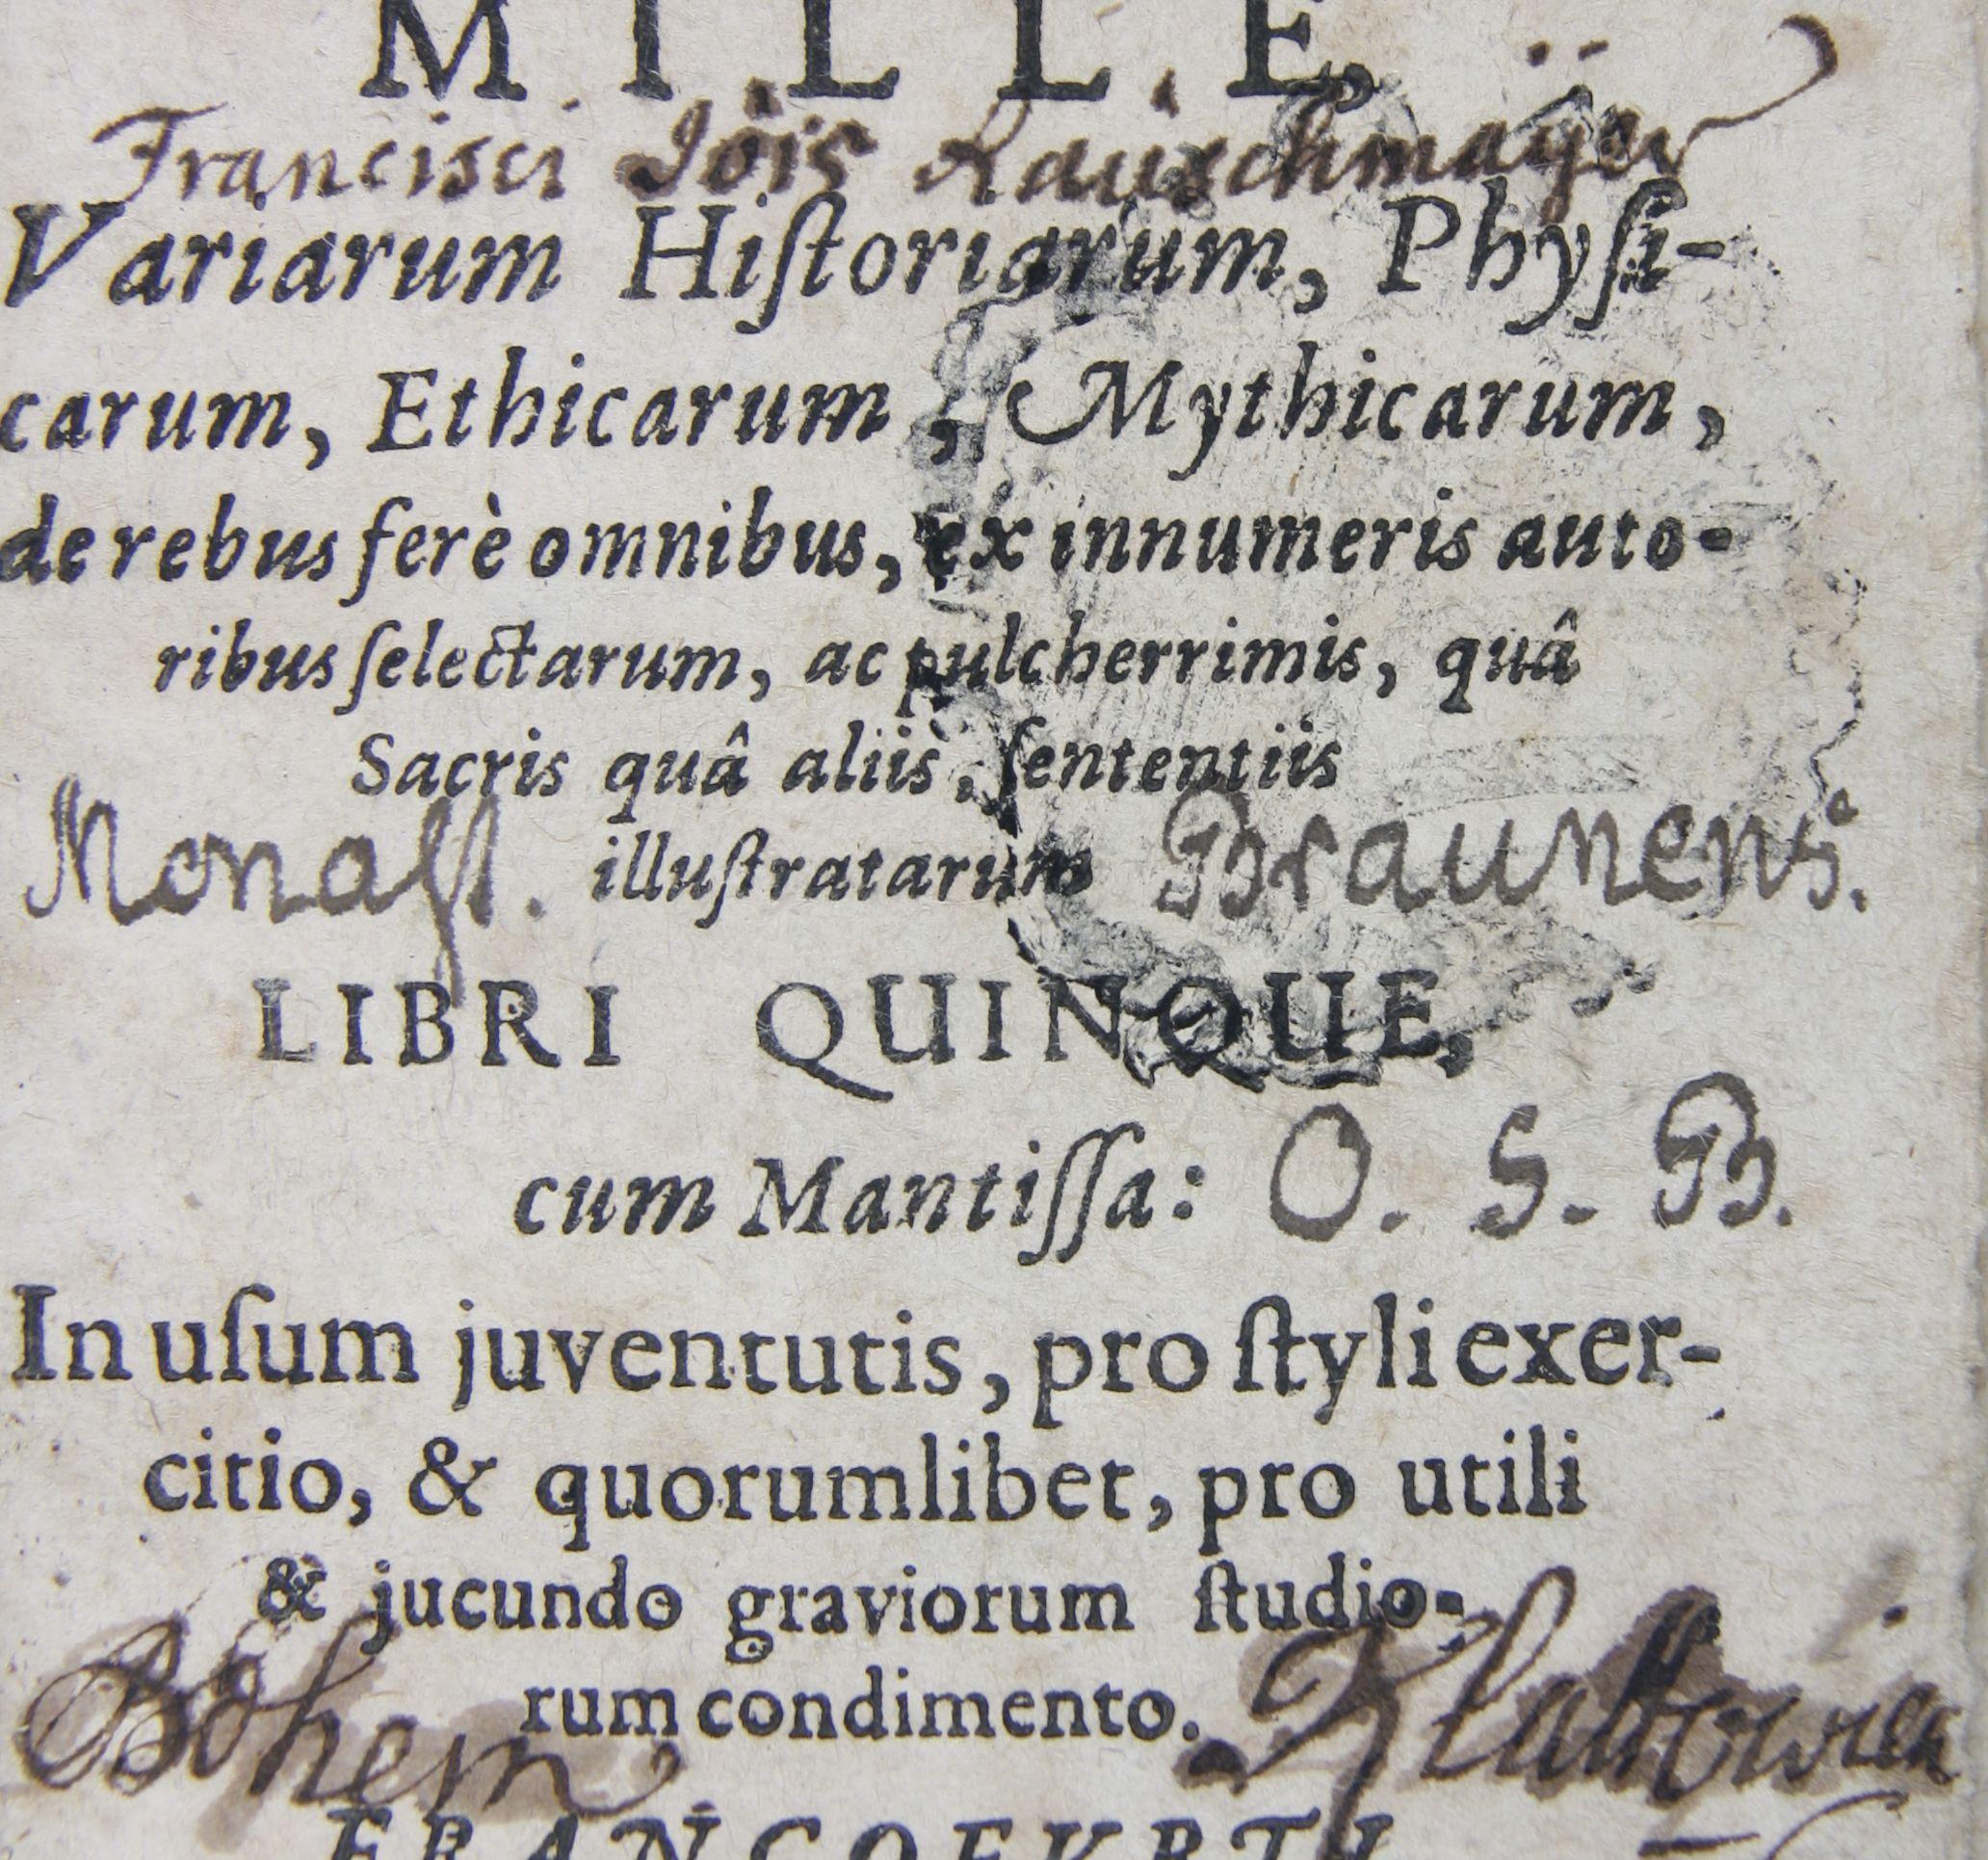 MILLE,
Francisci Jois Rauschmayer
Variarum Hiſtoriarum, Phyſi-
carum, Ethicarum, Mythicarum,
de rebus ferè omnibus, ex innumeris auto-
ribus ſelectarum, ac pulcherrimis, quâ
Sacris quâ aliis, ſententiis
Monaſt. illuſtratarum Braunens.
LIBRI QUINQUE,
cum Mantiſſa: O. S. B.
In uſum juventutis, pro ſtyli exer-
citio, & quorumlibet, pro utili
& jucundo graviorum ſtudio-
rum condimento.
Bohem
FRANCOFURTI